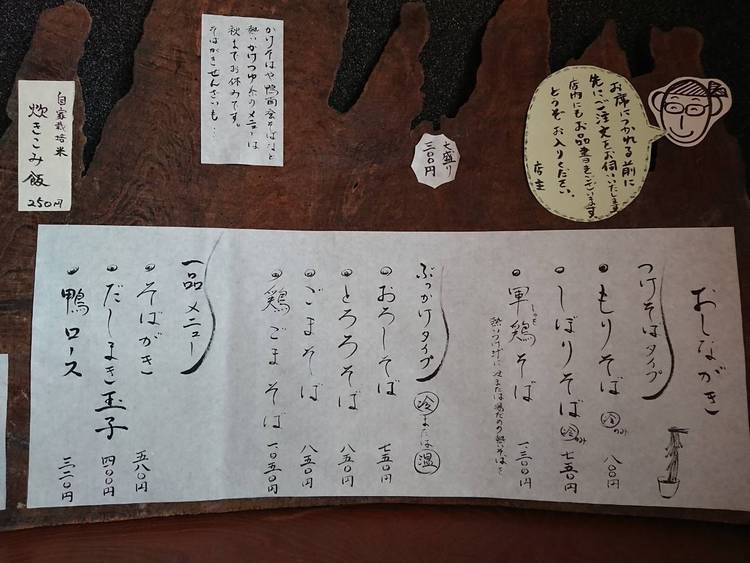 お席につかれる前に
先にご注文をお伺いします
店内にもお品書きございます
どうぞお入りください。
店主
大盛り
三〇〇円
かけそばや鴨南会そばなど
熱いかけつゆ系のメニューは
秋までお休みです。
そばがきぜんざいも…
自家栽培米
炊きこみ飯
250円
おしながき
つけそばタイプ
もりそば 冷のみ 八〇〇円
しぼりそば 冷のみ 七五〇円
軍鶏そば 一、三〇〇円
しゃも
熱いつけ汁に
ぶっかけタイプ 冷または温
おろしそば 七五〇円
とろろそば 八五〇円
ごまそば 八五〇円
鶏ごまそば 一〇五〇円
一品メニュー
そばがき 五八〇円
だしまき玉子 四〇〇円
鴨ロース 三二〇円